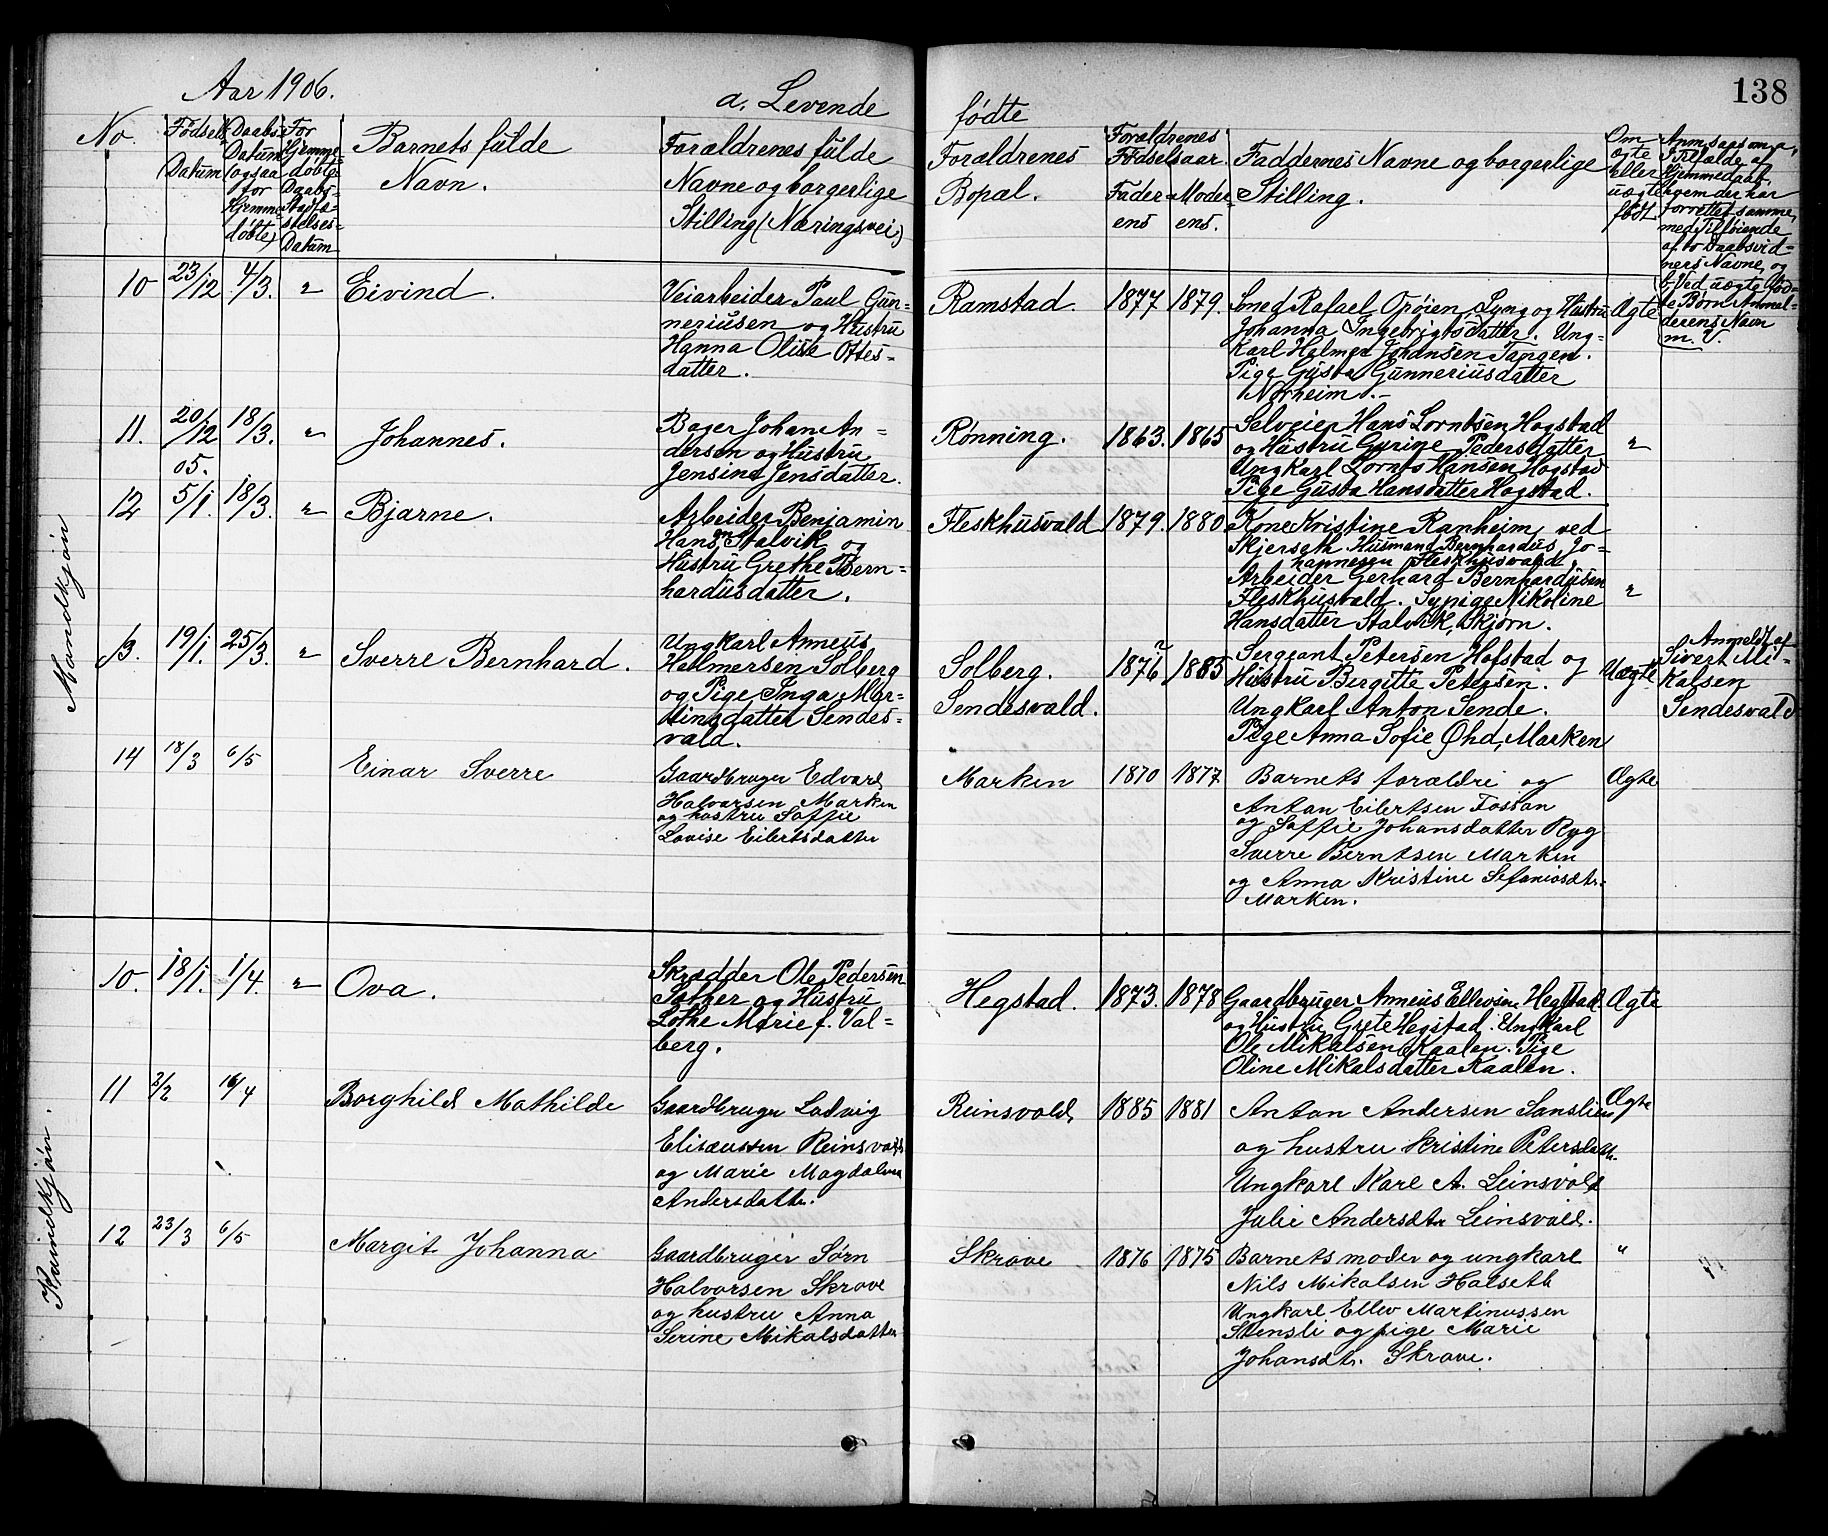 138
Aar 1906.
a. Levende fødte
No.
Fødsels Datum
Daabs Datum ogsaa for Hjemmedøbte
For Hjemmedøbte Daabs-Stadfæstelses-Datum
Barnets fulde Navn.
Forældrenes fulde Navne og borgerlige Stilling (Næringsvei)
Forældrenes Bopæl.
Forældrenes Fødselsaar. Faderens Moderens.
Faddernes Navne og borgerlige Stilling.
Om ægte eller uægte født
Tilfælde af Hjemmedaab, hvem der har forrettet samme, med Tilføiende af to Daabsvidners Navne, og Ved uægte fødte Børn Anmelderens Navn m. V.
Mandkjøn
10 23/12 4/3. " Eivind.
Veiarbeider Paul Gun-
neriusen og Hustru
Hanna Olise Ottes-
datter.
Ramstad. 1877 1879.
Smed Rafael Opøien Lyng og Hustru
Johanna Ingebrigtsdatter. Ung-
karl Halmer Johansen Tangen.
Pige Gusta Gunneriusdatter
Norheim.
Ægte
11. 20/12 05. 18/3. " Johannes.
Bager Johan An-
dersen og Hustru
Jensine Jensdatter.
Rønning. 1863. 1865
Selveier Hans Lorntsen Hogstad
og Hustru Gurine Pedersdatter
Ungkarl Lornts Hansen Hogstad
Pige Gusta Hansdatter Hogstad.
"
12 5/1. 18/3. " Bjarne.
Arbeider Benjamin
Hansen Stalvik og
Hustru Grethe Bern-
hardusdatter.
Fleskhusvald 1879. 1880
Kone Kristine Ranheim, ved
Skjerseth. Husmand Bernhardus Jo-
hannesen Fleskhusvald,
Arbeider Gerhard Bernhardusen
Fleskhusvald. Sypige Nikoline
Hansdatter Stalvik, Skjørn.
"
13. 19/1. 25/3. " Sverre Bernhard.
Ungkarl Anneus
Halmersen Solberg
og Pige Inga Mar-
tinsdatter Sendes-
vald.
Solberg. Sendesvald. 1876 1885
Sergeant Petersen Hofstad og
Hustru Birgitte Petersen.
Ungkarl Anton Sende.
Pige Anna Sofie Øhd, Marken
Uægte
Anmeldt af
Sivert Mi-
kalsen
Sendesvald
14 18/3 6/5 Einar Sverre
Gaardbruger Edvard
Halvorsen Marken
og hustru Soffie
Lovise Eilertsdatter
Marken 1870 1877
Barnets forældre og
Anton Eilertsen Fossan
og Soffie Johansdatter Ryg
Sverre Berntsen Marken
og Anna Kristine Stefaniosdtr.
Marken.
Ægte
Kvindkjøn.
10. 18/1. 1/4. " Ova.
Skrædder Ole Pedersen
og Hustru
Lothe Marie f. Val-
berg.
Hegstad. 1873. 1878
Gaardbruger Anneus Ellevsen Hegstad
og Hustru Grete Hegstad. Ungkarl
Ole Mikalsen Kaalen. Pige
Oline Mikalsdatter Kaalen.
Ægte
11 3/2 16/4 Borghild Mathilde
Gaardbruger Ludvig
Elisæussen Reinsvald
og Marie Magdalena
Andersdatter.
Reinsvald 1885 1881
Anton Andersen Sanslien
og hustru Kristine Petersdatter.
Ungkarl Karl A. Leinsvald
Julie Andersdtr Leinsvald.
Ægte
12 23/3 6/5 Margit Johanna
Gaardbruger Sørn
Halvorsen Skrove
og hustru Anna
Serine Mikalsdatter
Skrove 1876 1875
Barnets moder og ungkarl
Nils Mikalsen Halseth
Ungkarl Ellev Martinussen
Stensli og pige Marie
Johansdtr. Skrove.
"